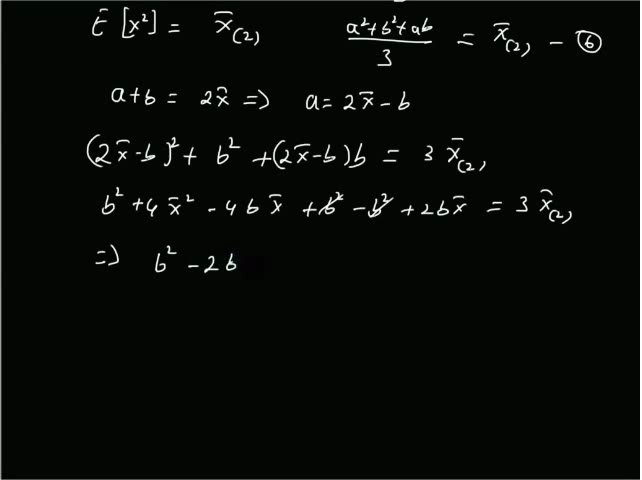 E [x²] = x̄₍₂₎   (a²+b²+ab)/3 = x̄₍₂₎ - ⑥
a+b = 2x̄ => a = 2x̄ - b
(2x̄-b)² + b² + (2x̄-b)b = 3 x̄₍₂₎
b² + 4x̄² - 4bx̄ + b² - b² + 2bx̄ = 3 x̄₍₂₎
=> b² - 2b